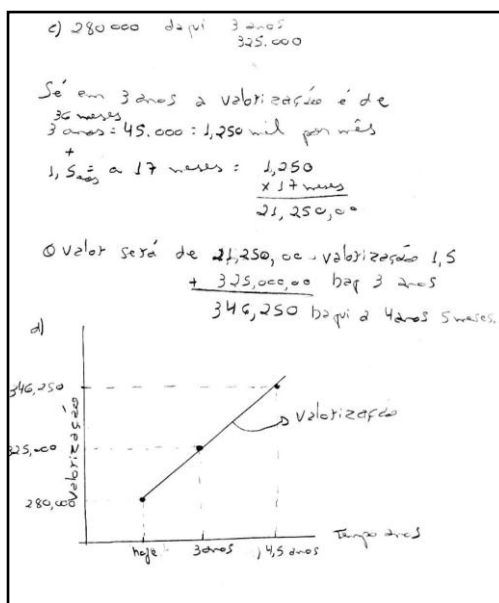 c) 280000 daqui 3 anos
325.000
Sé em 3 anos a valorização é de
36 meses
3 anos = 45.000 : 1,250 mil por mês
+
1,5 anos = a 17 meses = 1,250
x 17 meses
21,250,00
O valor será de 21,250,00 valorização 1,5
+ 325,000,00 haq 3 anos
346,250 haqui a 4 anos 5 meses.
d)
346,250
325,000
280,000
Valorização
Valorização
hoje
3 anos
4,5 anos
Tempo anos